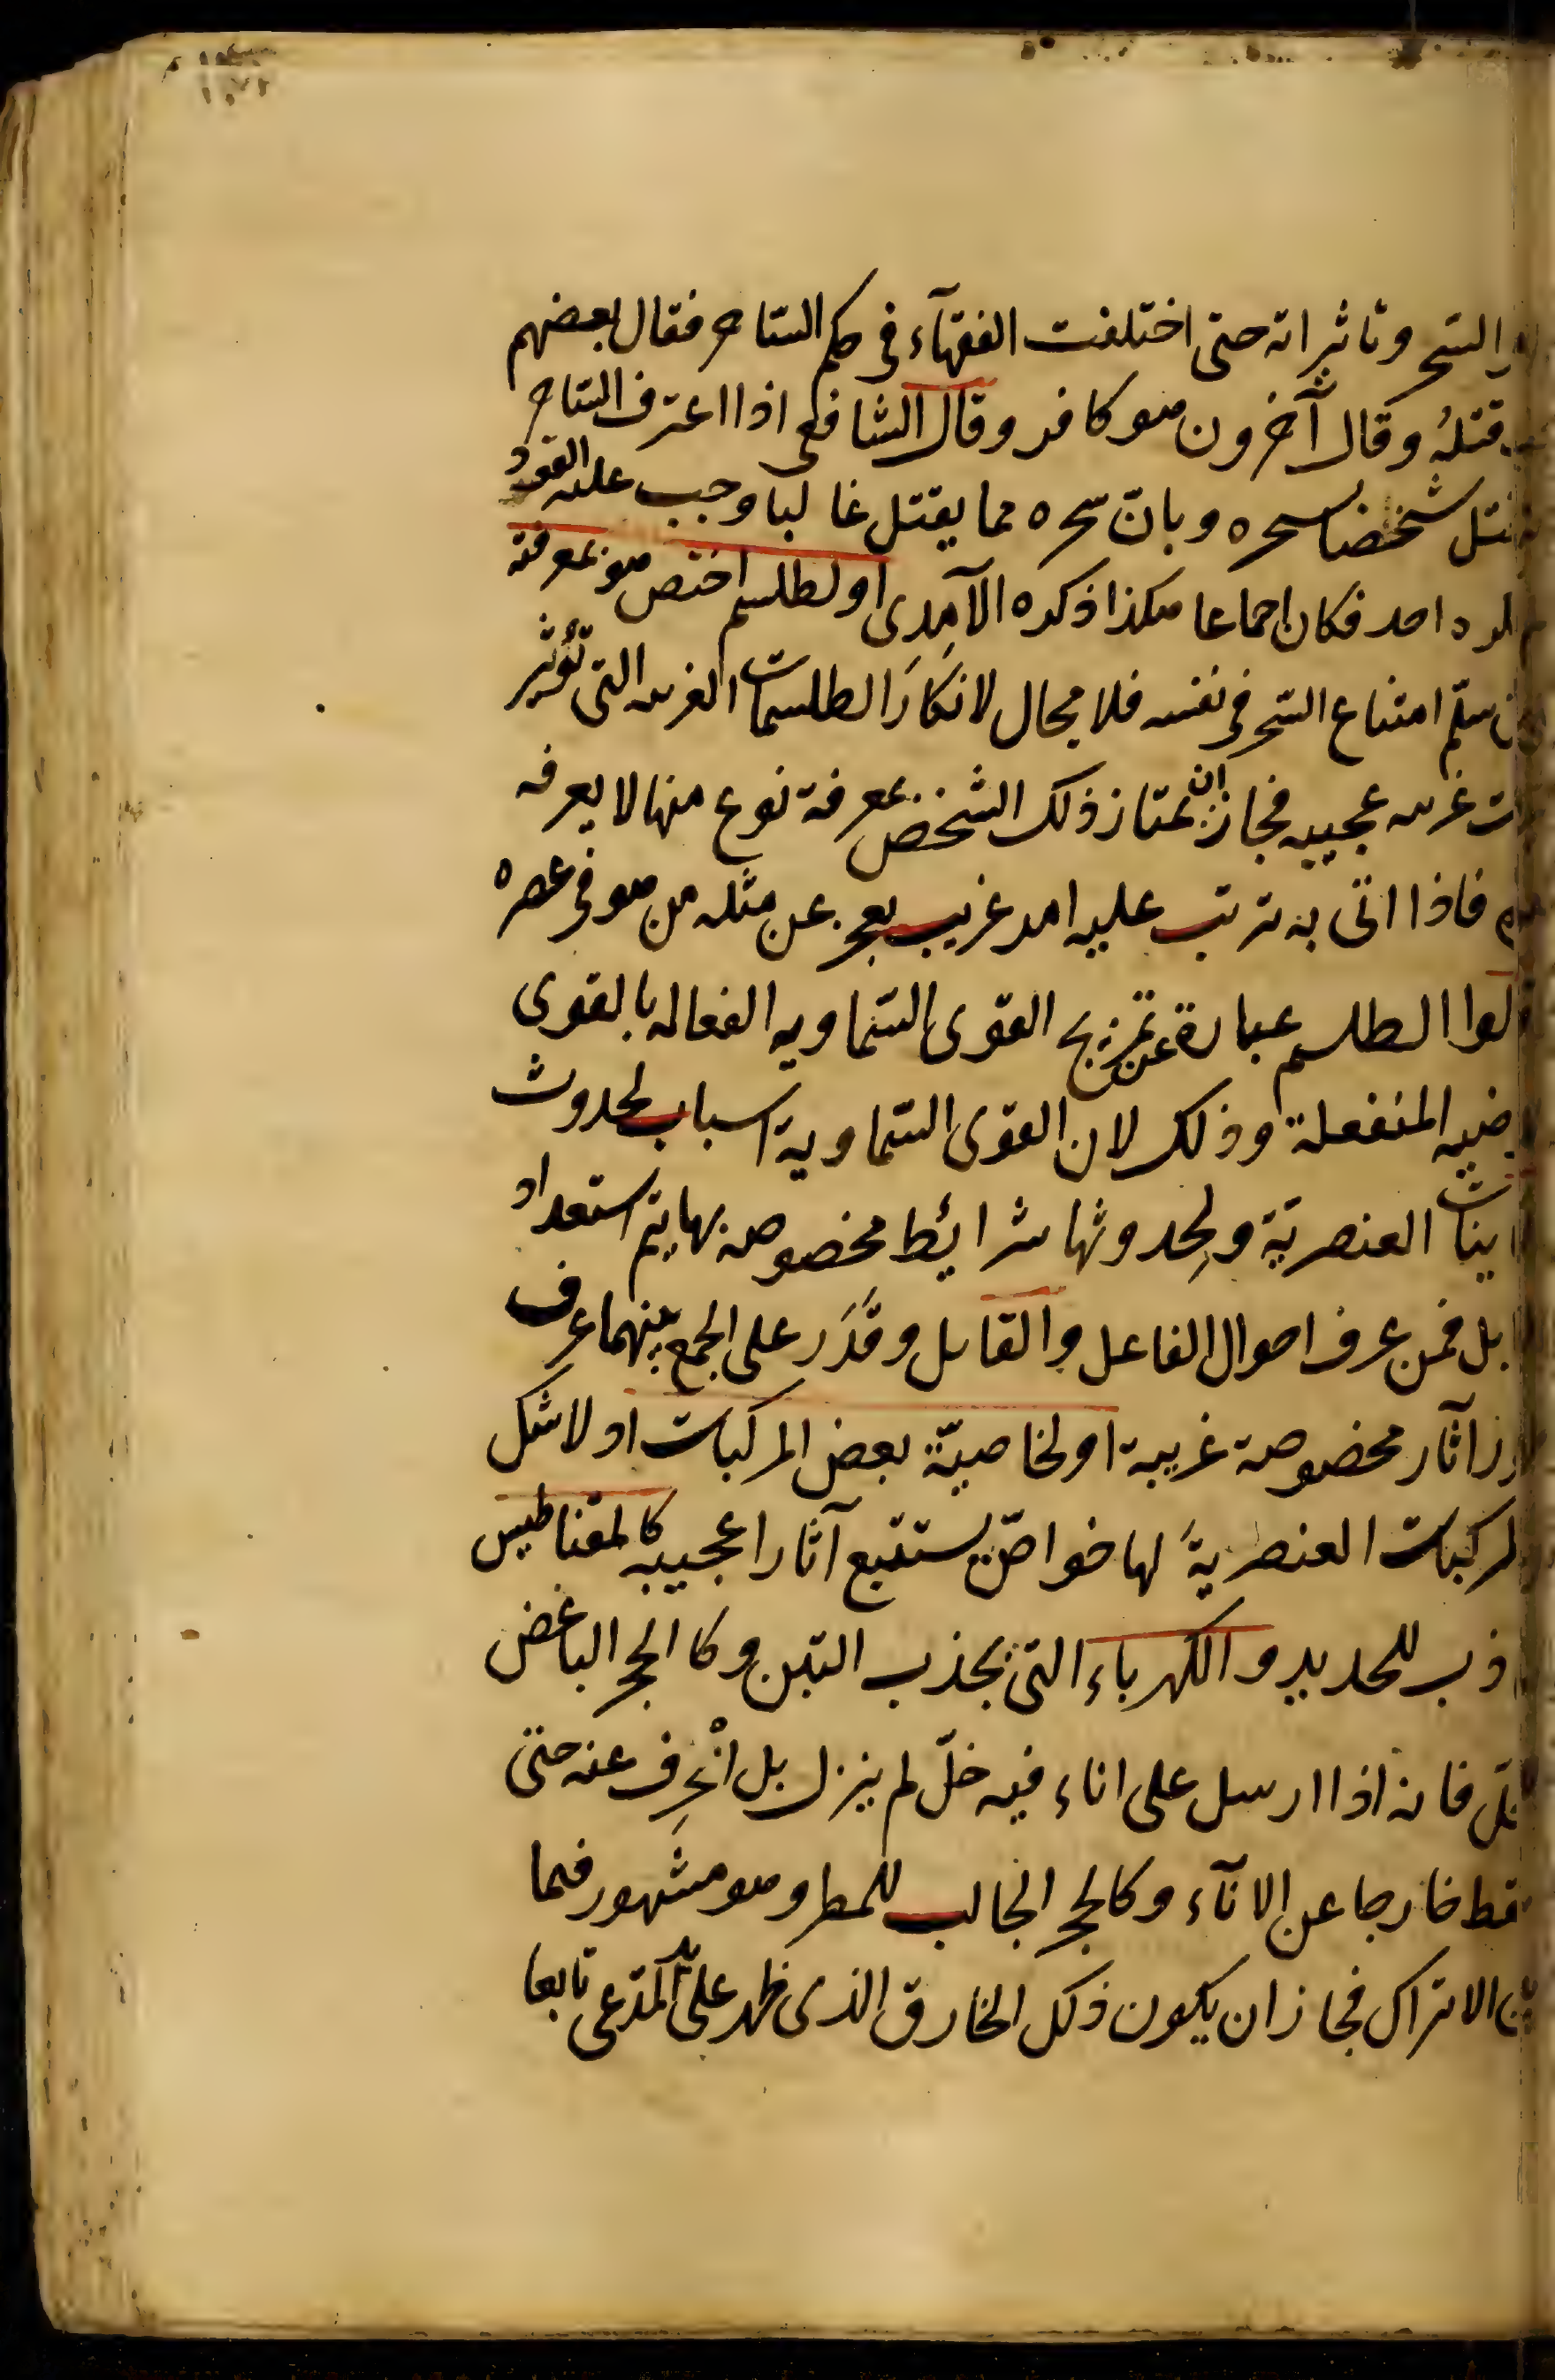 السحر وتاثيراته حتى اختلفت الفقهآء فى حكم الساحر فقال بعضهم
قتلهُ وقال آخرون هو كافر وقال الشافعى اذا اعترف الساحر
شخصا بسحره وبانّ سحره مما يقتل غالبا وجب عليه القود
احد فكان اجماعا هكذا ذكره الآمِدى او لطلسم اختص هو بمعرفته
سلّم امتناع السحر فى نفسه فلا مجال لانكارَ الطلسمات الغريبه التى تؤثير
غريبه عجيبه فجاز ان يمتاز ذلك الشخص بمعرفة نوع منها لا يعرفه
فاذا اتى به ترتب عليه امر غريب يعجز عن مثله من هو فى عصره
الطلسم عبارة عن تمزيج القوى السّماويه الفعاله بالقوى
المنفعلة وذلك لان القوى السّماوية اسباب لحدوث
العنصريّة ولِحدوثها شرايُط مخصوصه بها يتم استعداد
فمن عرف احوال الفاعل والقابل وقَدَر على الجمع بينهما عرف
آثار مخصوصة غريبة او لخاصيّة بعض المركبات اذ لا شك
المركبات العنصريةً لها خواصّ يستتبع آثارا عجيبه كالمقناطيس
للحديد والكهرباء التى يجذب التبن وكا الحجر الباغض
فانه اذا ارسل على اناء فيه خلّ لم ينزل بل انْحرِف عنه حتى
خارجا عن الانآء وكالحجر الجالب للمطر وهو مشهور فيما
الاتراك فجاز ان يكون ذلك الخارق الذى ظهر على يد المدّعى تابعا